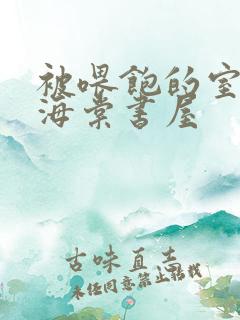 被喂饱的室
海棠书屋
古味直志
未经同意禁止转载